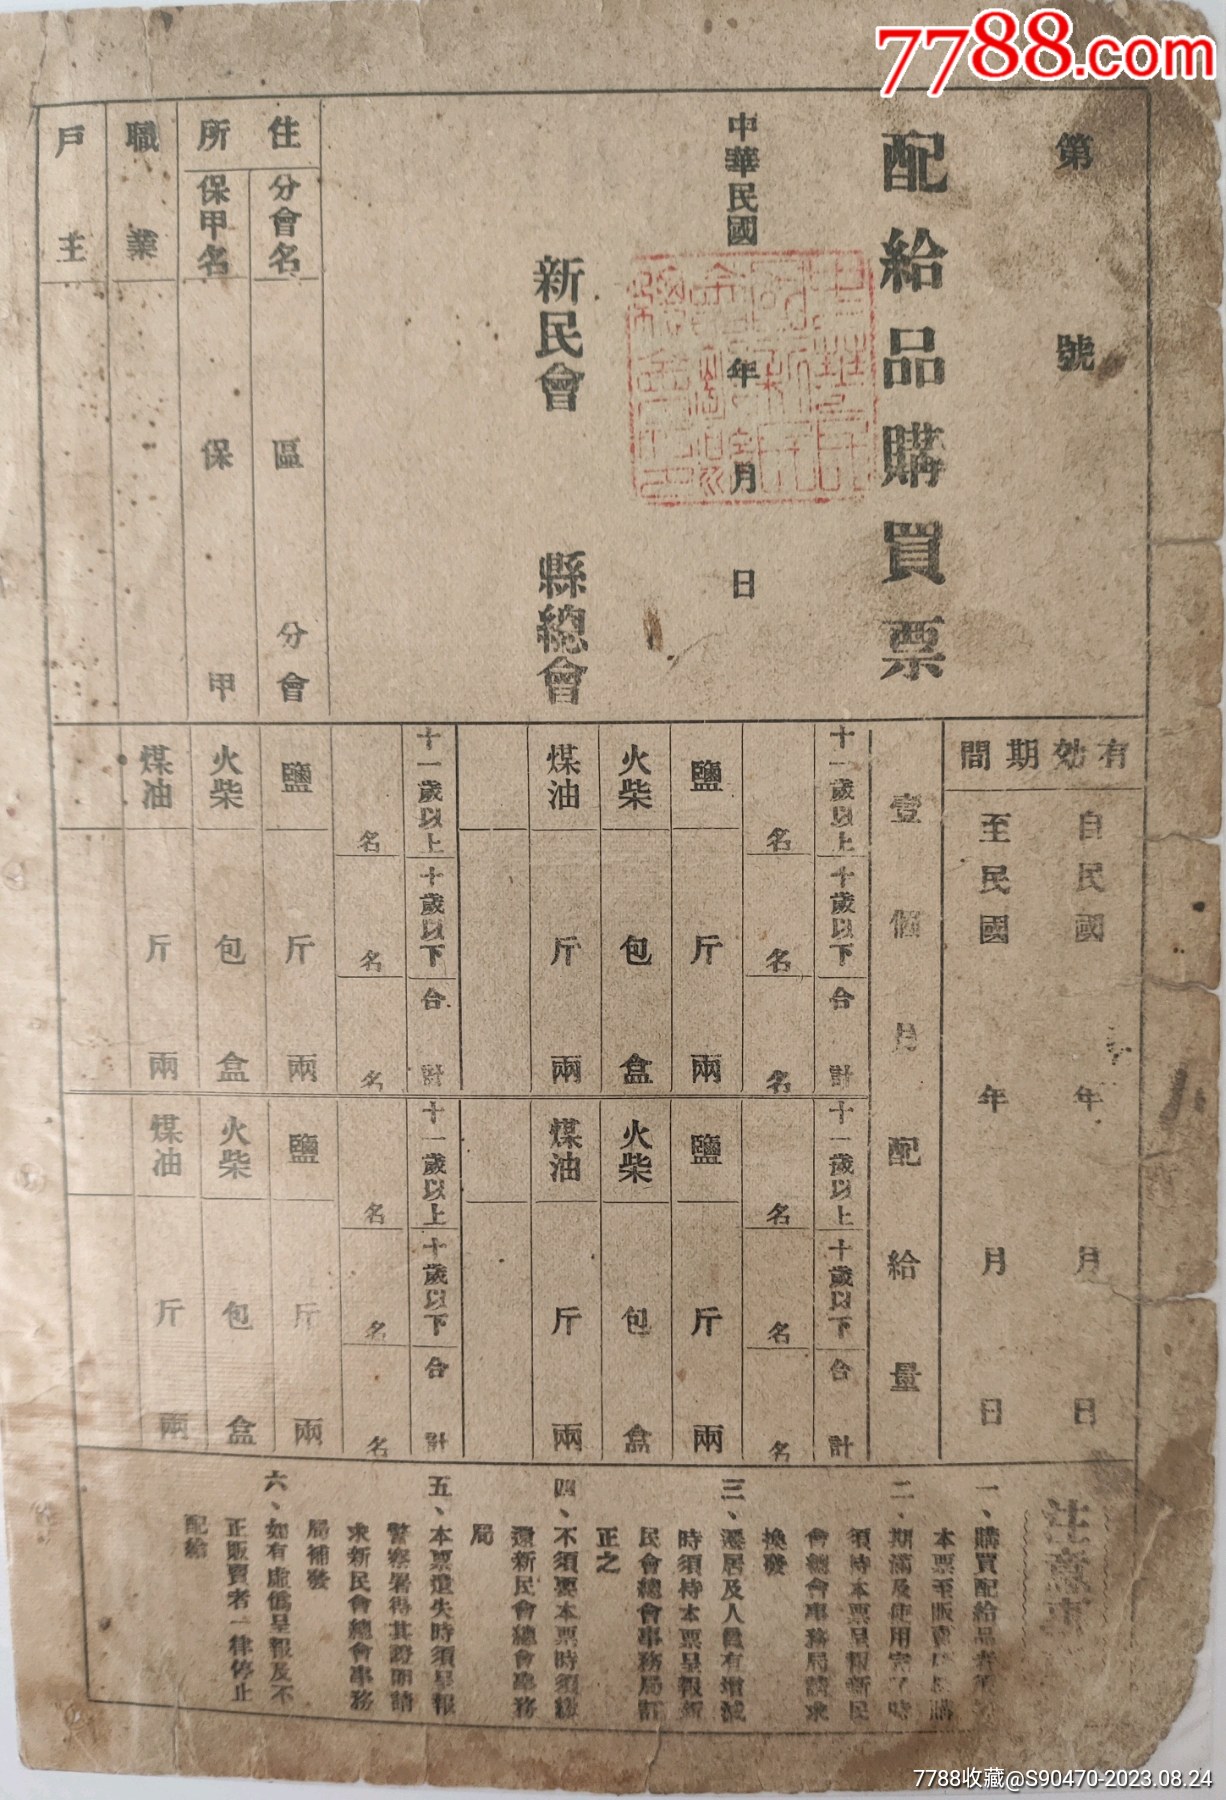 7788.com
第 號
配給品購買票
中華民國 年 月 日
新民會 縣總會
住所
分會名 區 分會
保甲名 保 甲
職業
戶主
有効期間
自民國 年 月 日
至民國 年 月 日
壹個月配給量
十一歲以上 名
十歲以下 名
合計 名
鹽 斤 兩
火柴 包 盒
煤油 斤 兩
十一歲以上 名
十歲以下 名
合計 名
鹽 斤 兩
火柴 包 盒
煤油 斤 兩
十一歲以上 名
十歲以下 名
合計 名
鹽 斤 兩
火柴 包 盒
煤油 斤 兩
十一歲以上 名
十歲以下 名
合計 名
鹽 斤 兩
火柴 包 盒
煤油 斤 兩
注意事
一、購買配給品者須
本票至販賣 購
二、期滿及使用完了時
須持本票呈報新民
會總會事務局請求
換發
三、遷居及人員有增減
時須持本票呈報新
民會總會事務局訂
正之
四、不須要本票時須繳
還新民會總會事務
局
五、本票遺失時須呈報
警察署得其證明請
求新民會總會事務
局補發
六、如有虛僞呈報及不
正販賣者一律停止
配給
7788收藏@S90470-2023.08.24